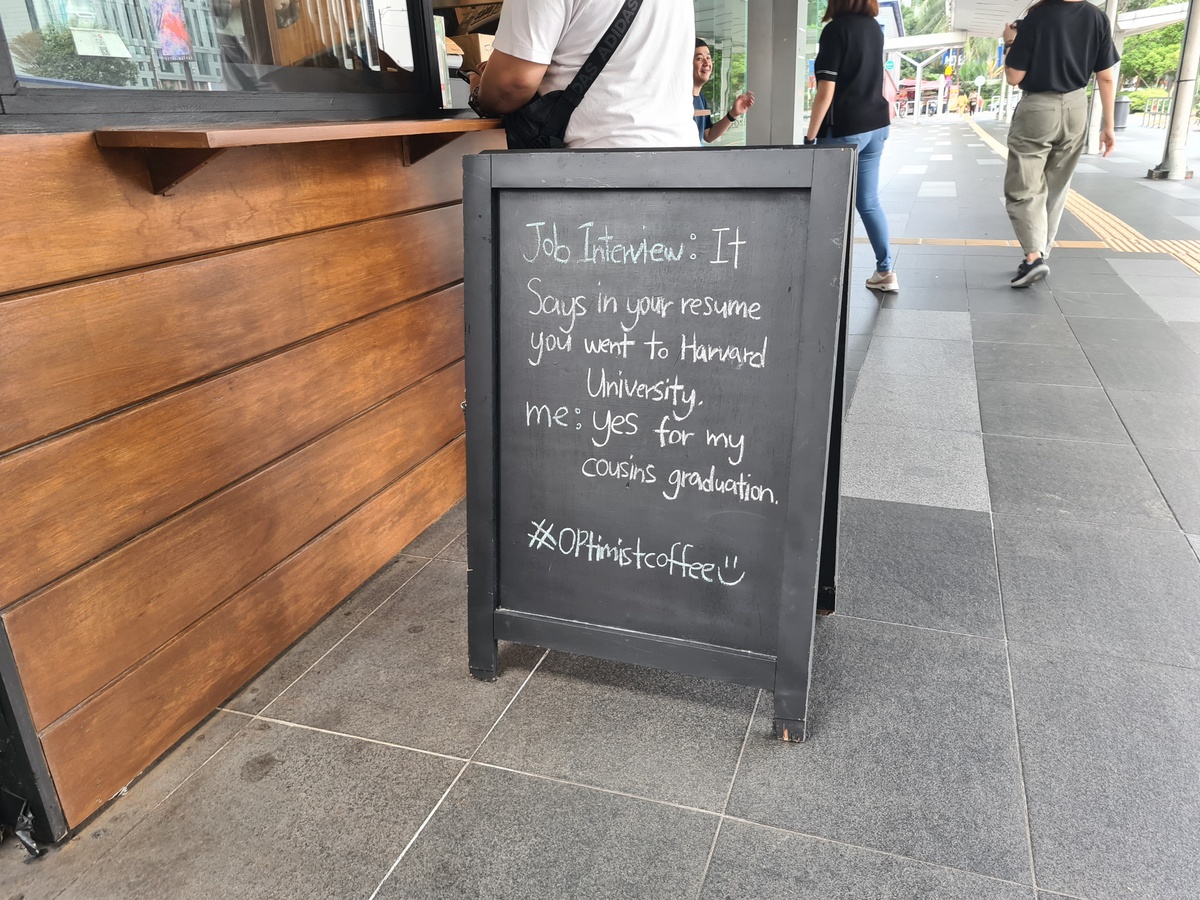 Job Interview: It
Says in your resume
you went to Harvard
University.
me: yes for my
cousins graduation.
#OPtimistcoffee
ADIDAS